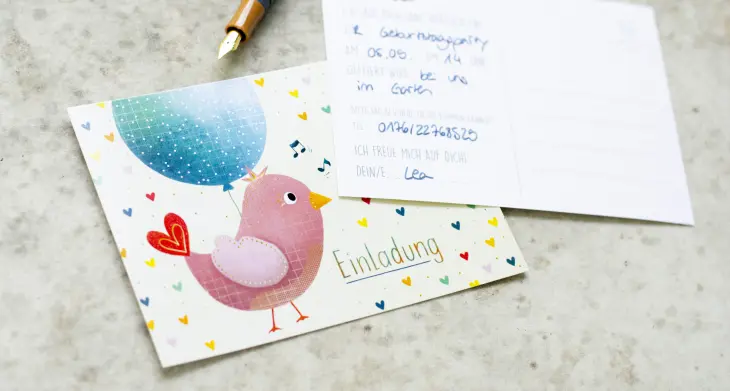 Geburtstagsparty
IM 06.05. UM 14 UHR
GEFEIERT WIRD: bei uns
im Garten
TEL. 0176/22768525
ICH FREUE MICH AUF DICH!
DEIN/E: Lea
Einladung